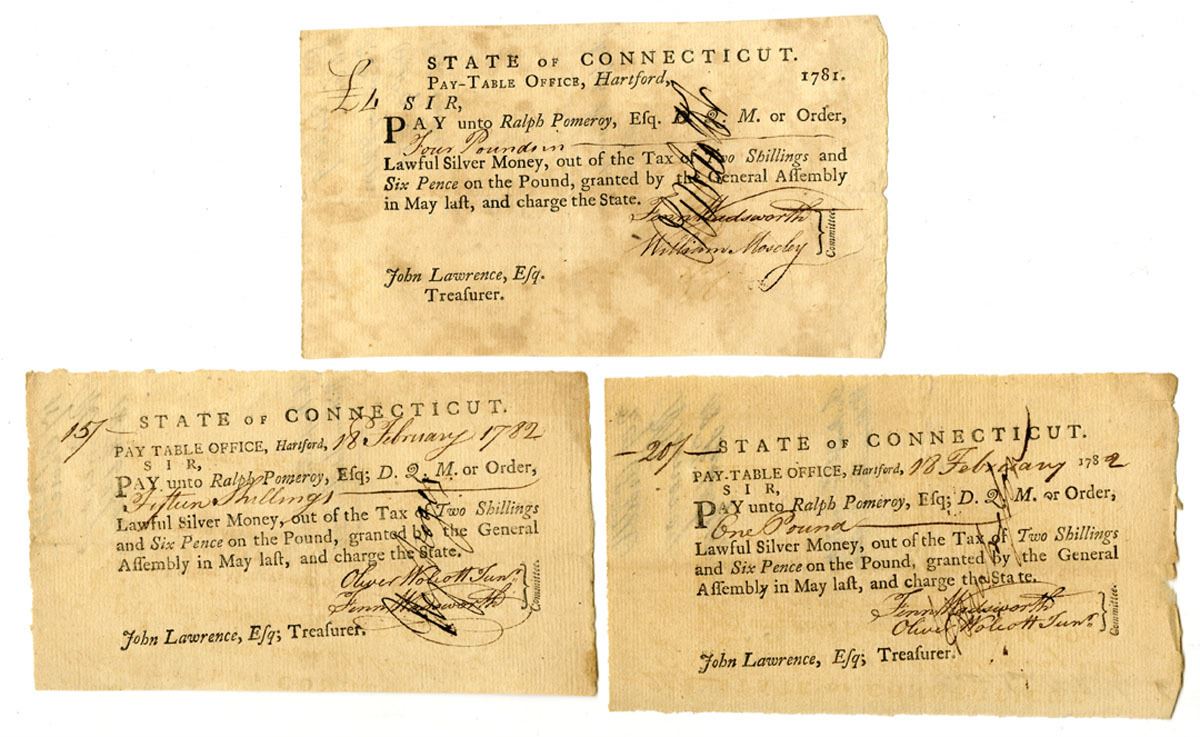 STATE OF CONNECTICUT.
PAY-TABLE OFFICE, Hartford, 1781.
£4 SIR,
PAY unto Ralph Pomeroy, Esq. D. Q. M. or Order,
Four Pounds
Lawful Silver Money, out of the Tax of Two Shillings and
Six Pence on the Pound, granted by the General Aſſembly
in May laſt, and charge the State.
Fenn Wadsworth
William Moseley
Committee.
John Lawrence, Eſq.
Treaſurer.
15/- STATE OF CONNECTICUT.
PAY TABLE OFFICE, Hartford, 18 February 1782
SIR,
PAY unto Ralph Pomeroy, Eſq; D. Q. M. or Order,
Fifteen Shillings
Lawful Silver Money, out of the Tax of Two Shillings
and Six Pence on the Pound, granted by the General
Aſſembly in May laſt, and charge the State.
Oliver Wolcott Junr.
Fenn Wadsworth
Committee.
John Lawrence, Eſq; Treaſurer.
-20/- STATE OF CONNECTICUT.
PAY-TABLE OFFICE, Hartford, 18 February 1782
SIR,
PAY unto Ralph Pomeroy, Eſq; D. Q. M. or Order,
One Pound
Lawful Silver Money, out of the Tax of Two Shillings
and Six Pence on the Pound, granted by the General
Aſſembly in May laſt, and charge the State.
Fenn Wadsworth
Oliver Wolcott Junr.
Committee.
John Lawrence, Eſq; Treaſurer.